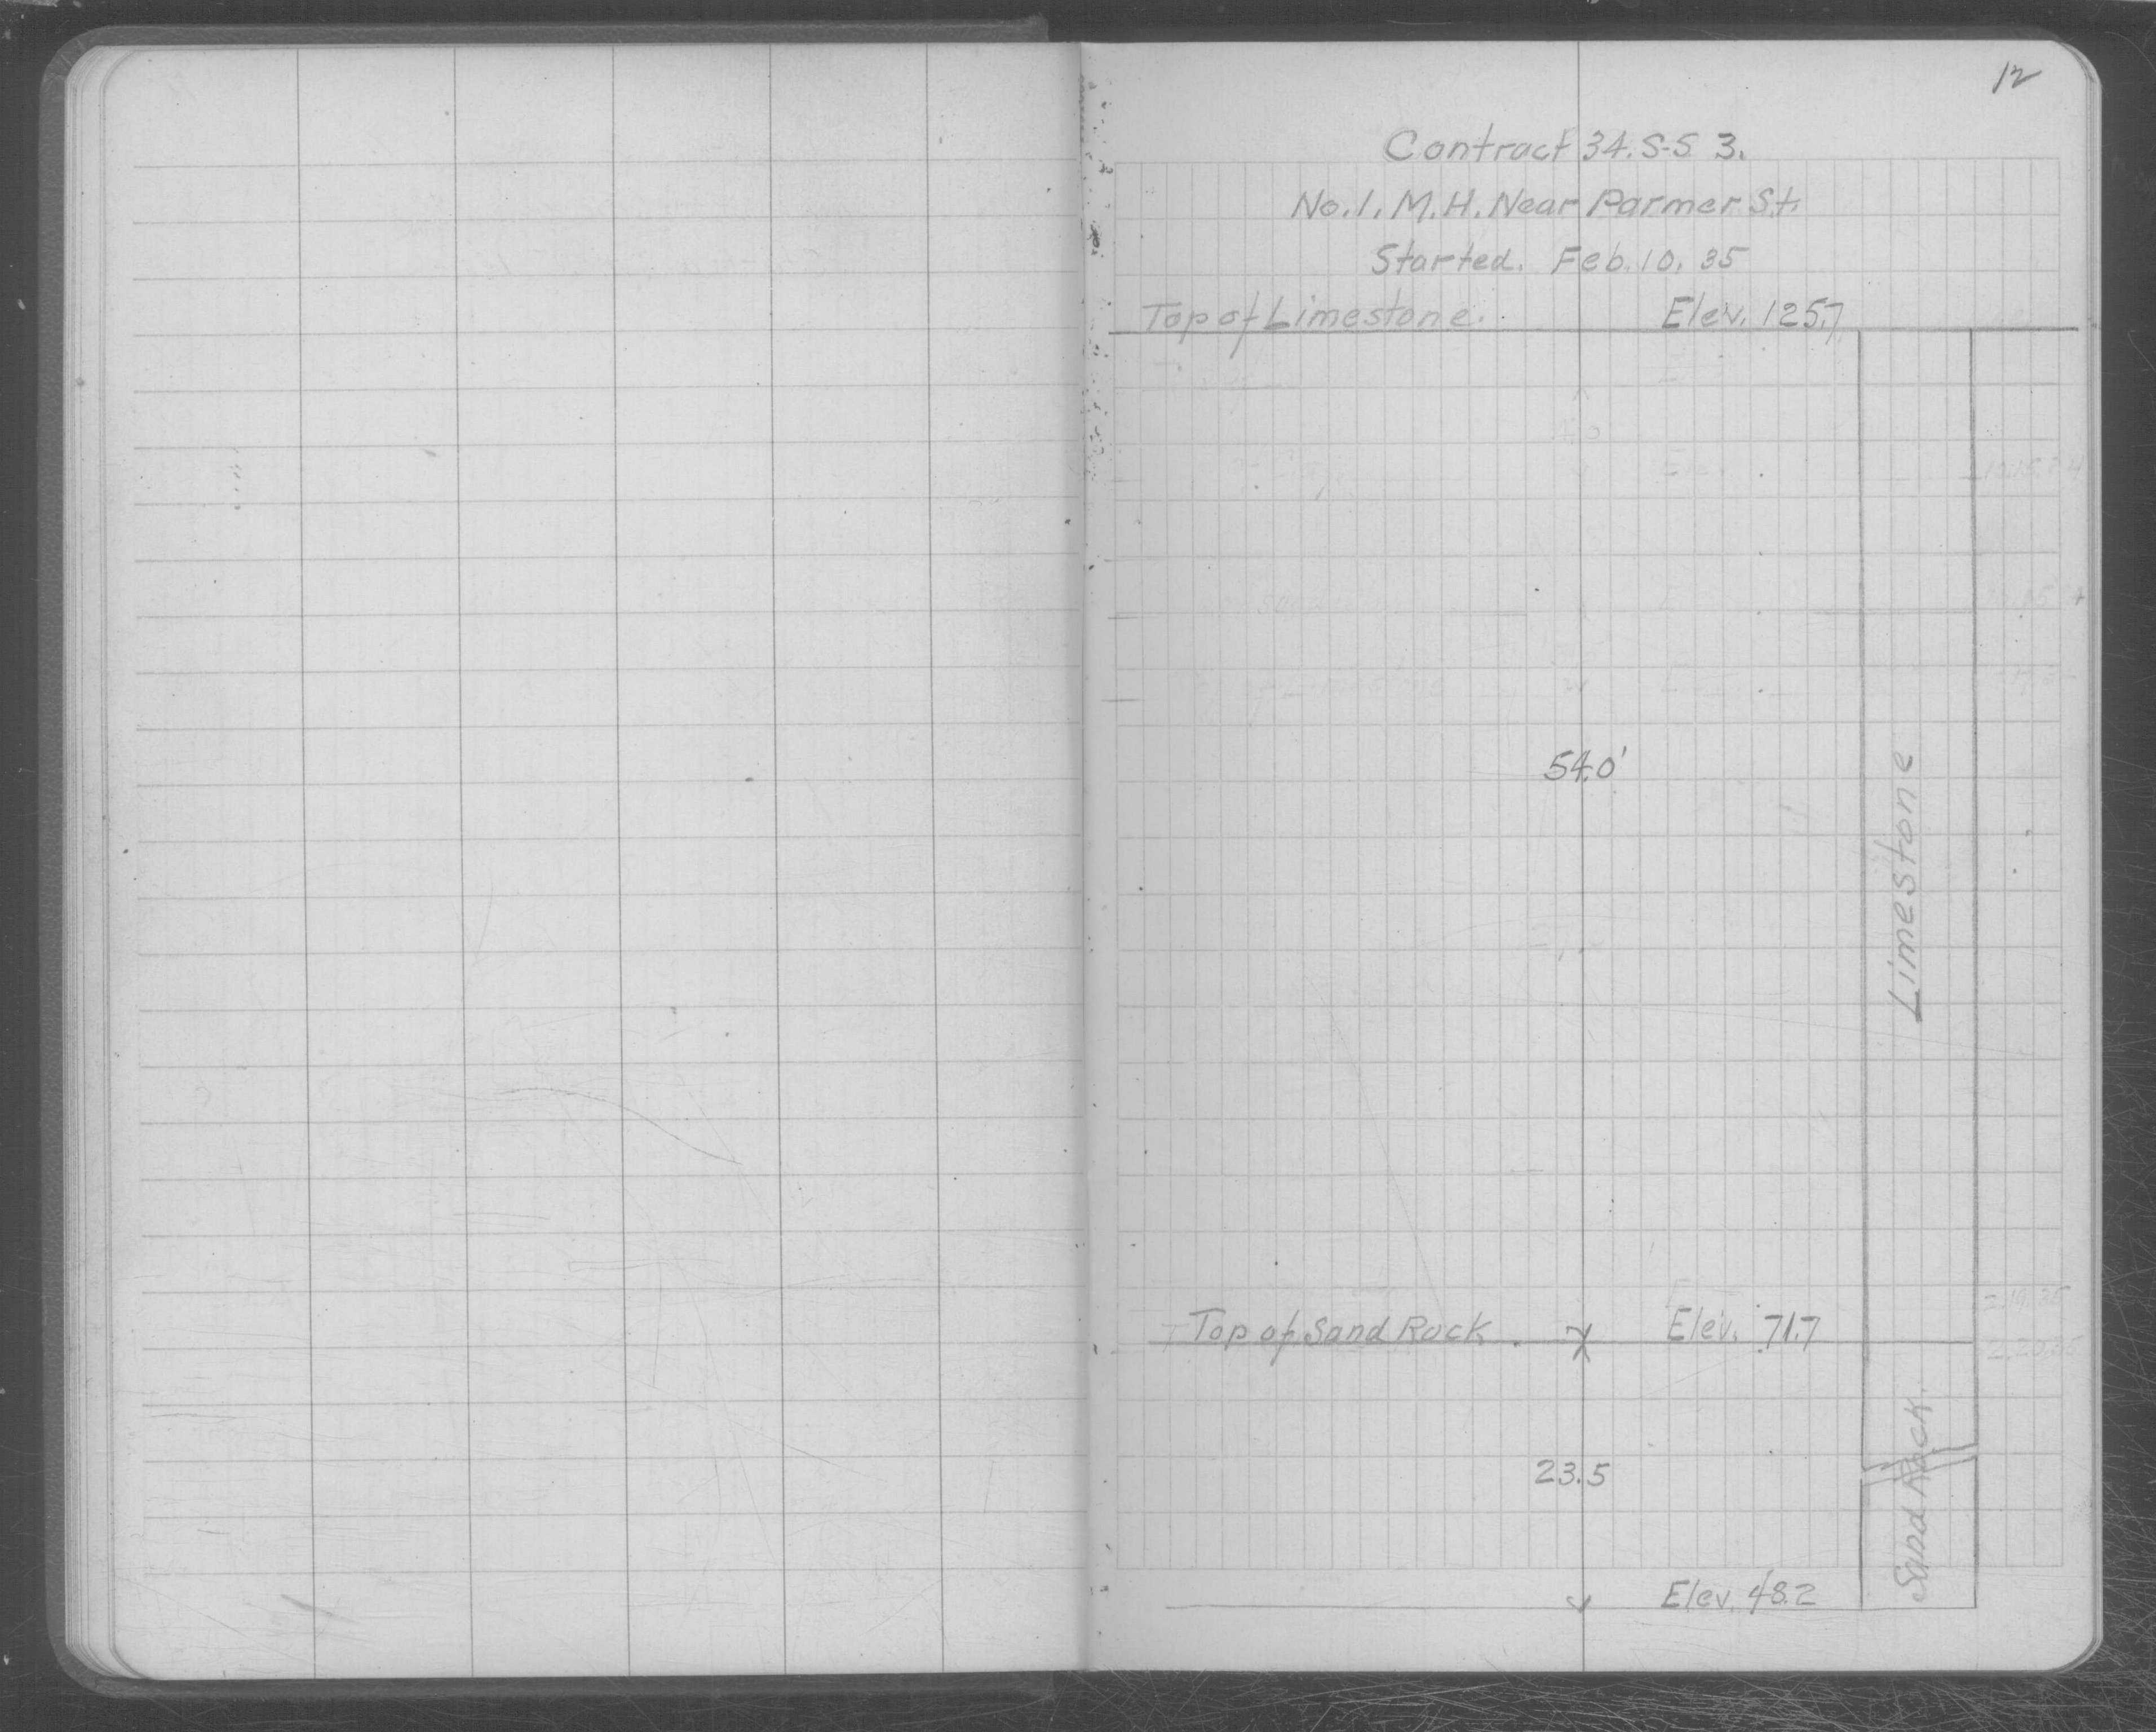 12
Contract 34.S-S 3.
No.1. M.H. Near Parmer St.
Started. Feb. 10. 35
Top of Limestone. Elev. 125.7
54.0'
Limestone
Top of Sand Rock. Elev. 71.7
23.5
Sand Rock.
Elev. 48.2